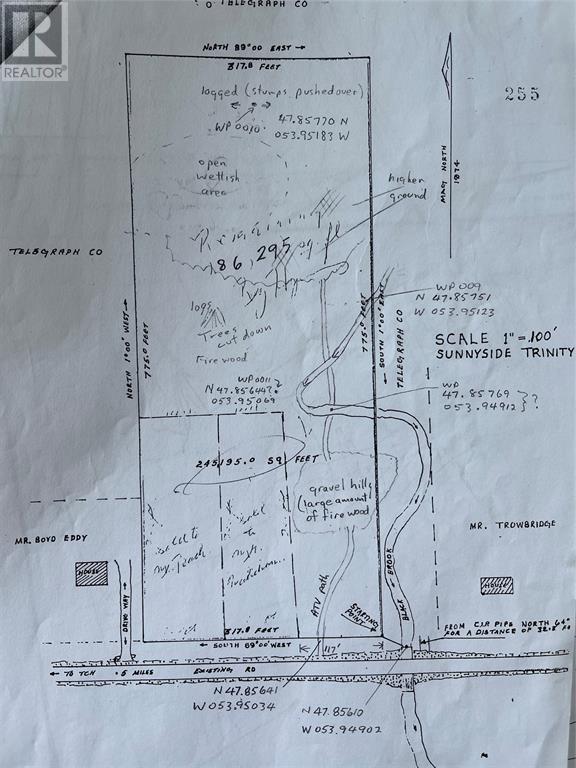 O TELEGRAPH CO
REALTOR®
NORTH 89°00 EAST
317.8 FEET
logged (stumps pushed over)
WP 0010
47.85770 N
053.95183 W
255
MAG NORTH
1874
open
wettish
area
higher
ground
Remaining
86,295 sq ft
TELEGRAPH CO
NORTH 1°00' WEST
775.0 FEET
775.0 FEET
SOUTH 1°00' EAST
TELEGRAPH CO
WP 009
N 47.85751
W 053.95123
SCALE 1" = 100'
SUNNYSIDE TRINITY
logs
Trees
cut down
Fire wood
WP0011
N 47.85644?
053.95069
WP
47.85769
053.94912 } ?
245195.0 SQ FEET
gravel hill
(large amount
of fire wood
MR. BOYD EDDY
HOUSE
DRIVEWAY
to
to
ATV Path
STARTING
POINT
BLACK BROOK
MR. TROWBRIDGE
HOUSE
FROM CIP PIPE NORTH 64°
FOR A DISTANCE OF
317.8 FEET
SOUTH 89°00' WEST
117'
TO TCH .5 MILES EXISTING RD
N 47.85641
W 053.95034
N 47.85610
W 053.94902